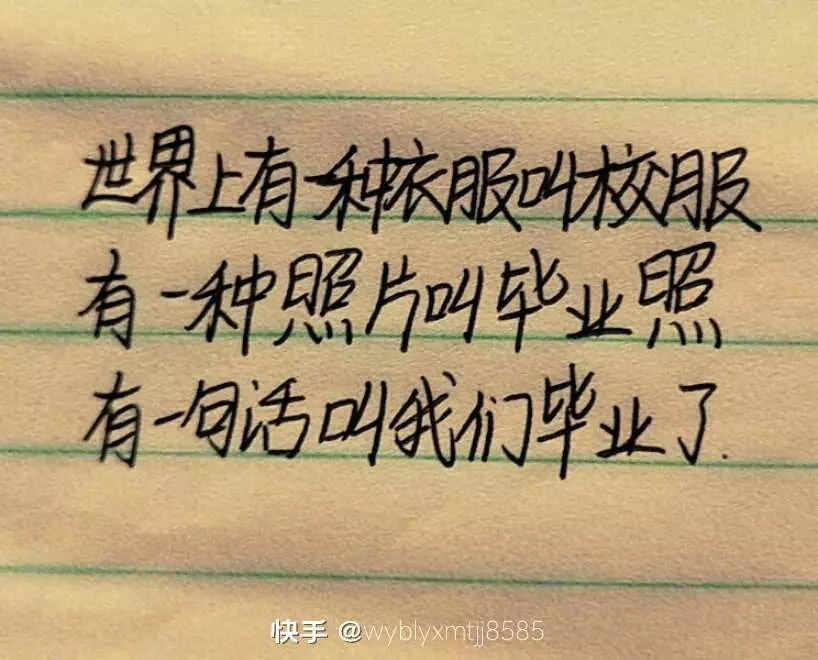 世界上有一种衣服叫校服
有一种照片叫毕业照
有一句话叫我们毕业了.
快手 @wyblyxmtjj8585